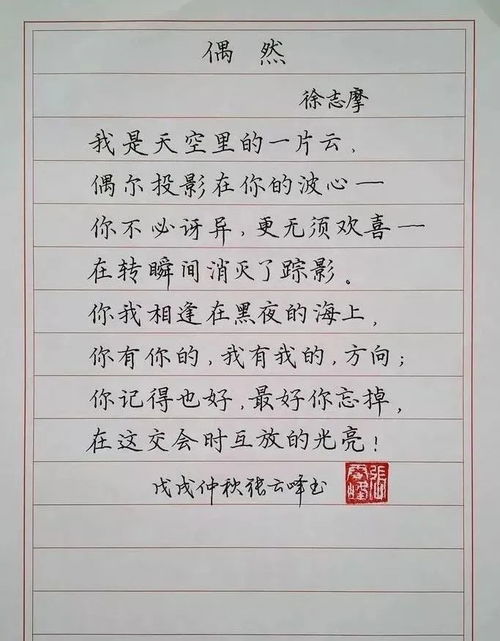 偶然
徐志摩
我是天空里的一片云,
偶尔投影在你的波心一
你不必讶异,更无须欢喜一
在转瞬间消灭了踪影。
你我相逢在黑夜的海上,
你有你的,我有我的,方向;
你记得也好,最好你忘掉,
在这交会时互放的光亮!
戊戌仲秋张云峰书